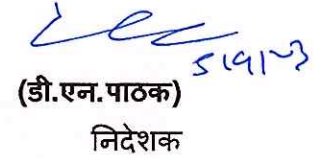 5/9/23
(डी.एन.पाठक)
निदेशक